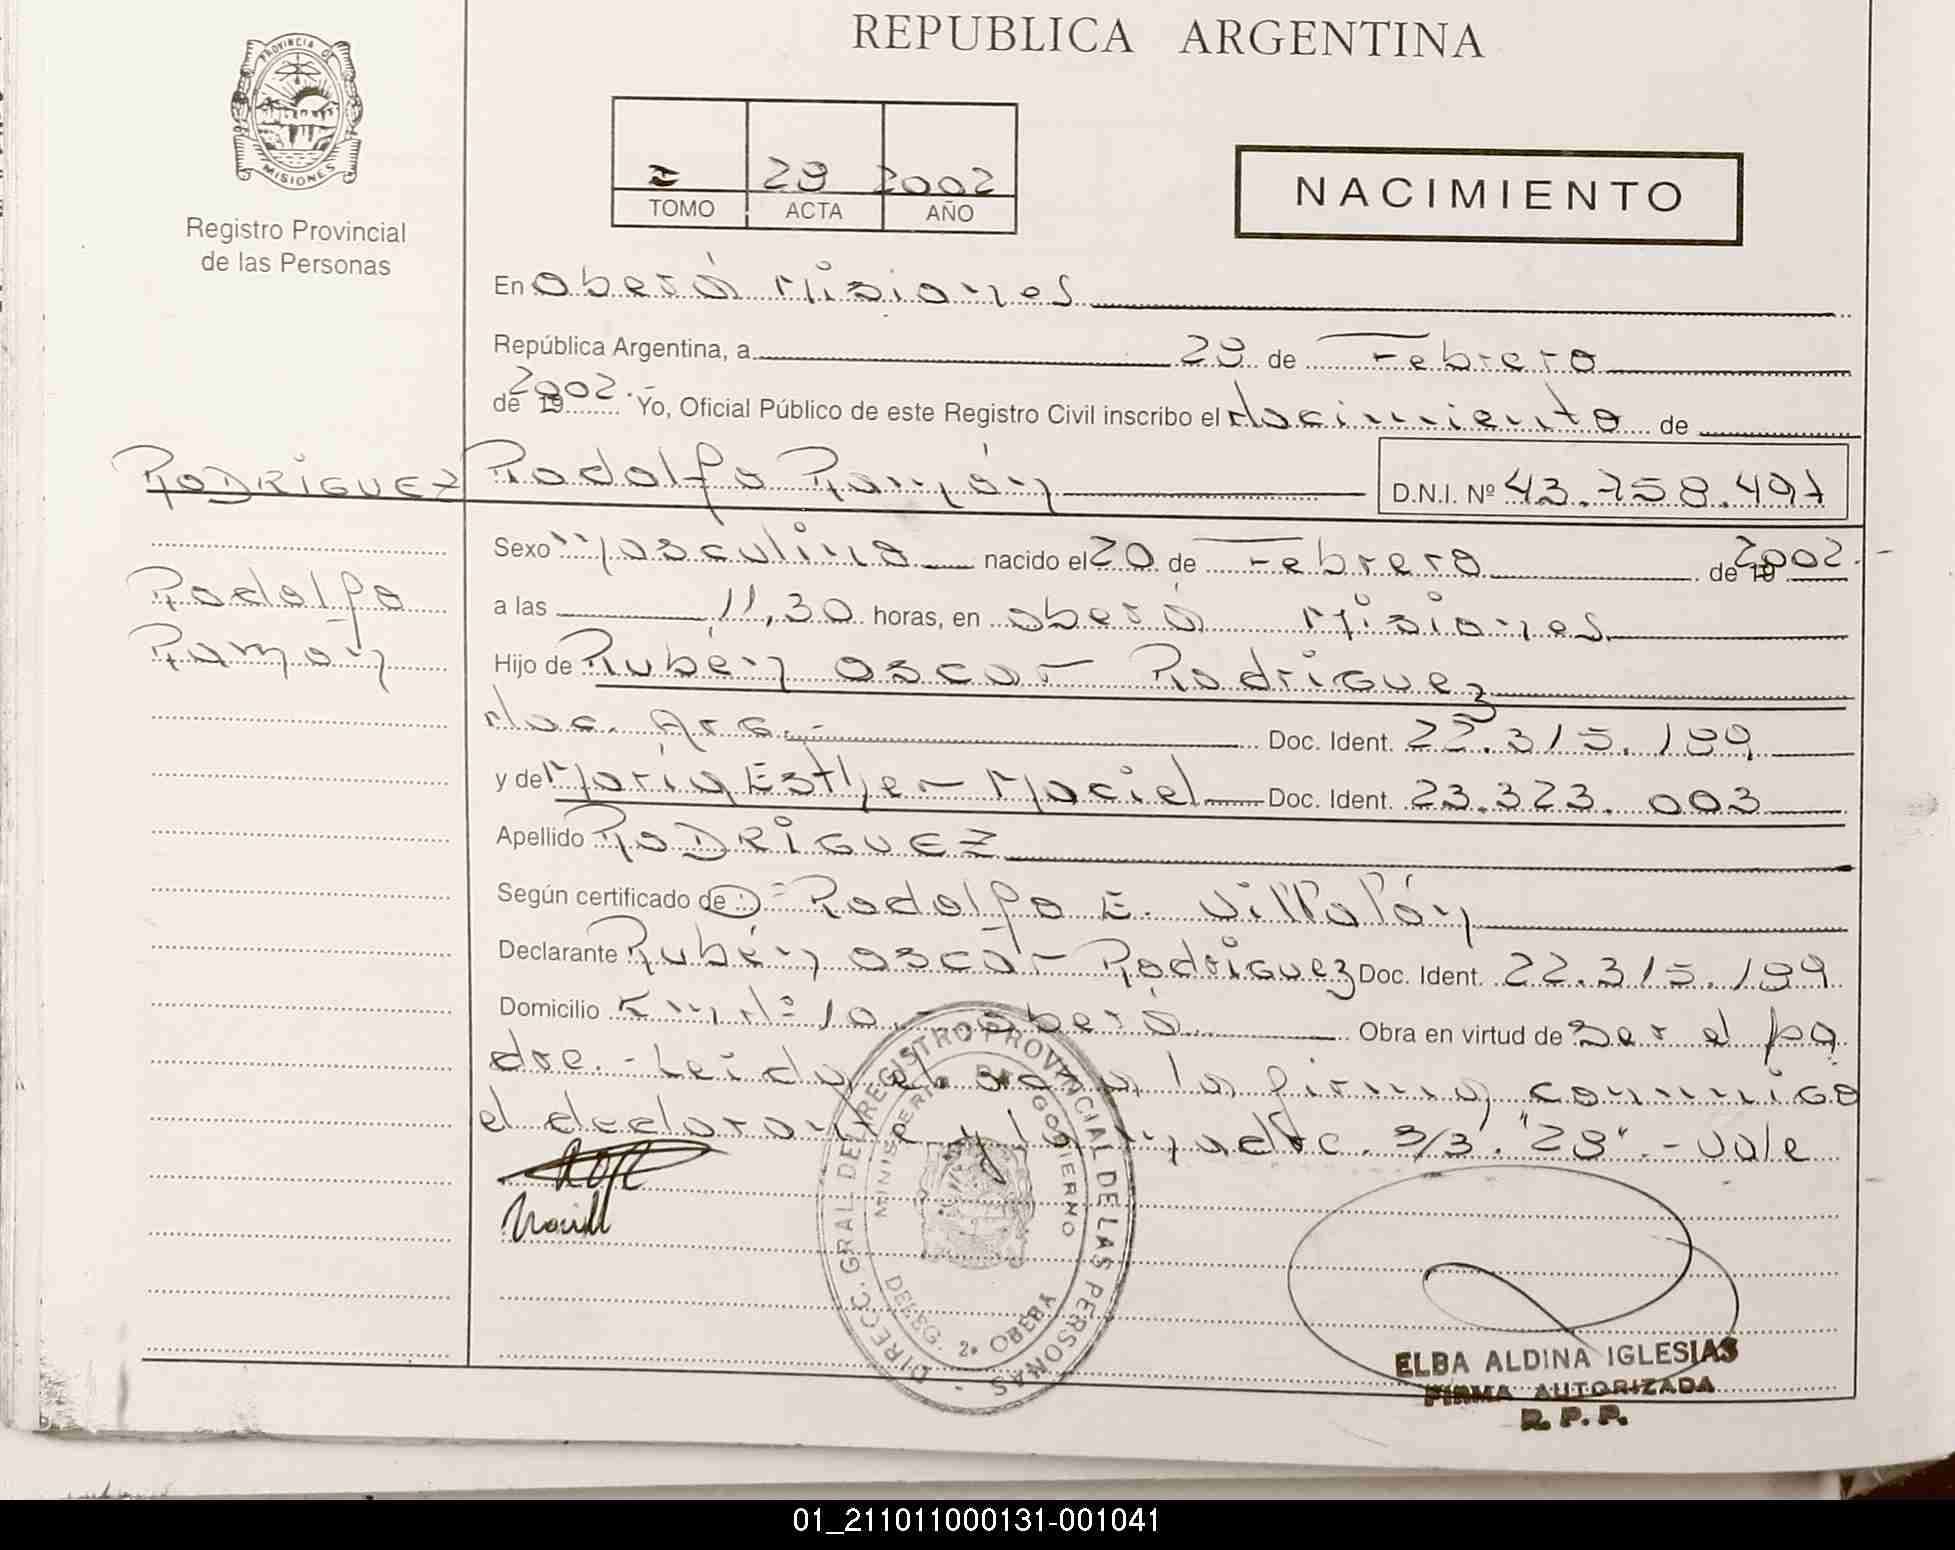 REPUBLICA ARGENTINA
PROVINCIA DE
MISIONES
Registro Provincial
de las Personas
29 2002
TOMO ACTA AÑO
NACIMIENTO
En Oberá Misiones
República Argentina, a 29 de Febrero
de 19 2002.- Yo, Oficial Público de este Registro Civil inscribo el Nacimiento de
RODRIGUEZ Rodolfo Ramón D.N.I. Nº 43.758.497
Sexo Masculino nacido el 20 de Febrero de 19 2002.-
Rodolfo
Ramón
a las 11,30 horas, en Oberá Misiones
Hijo de Rubén Oscar Rodriguez
Nac. Arg.- Doc. Ident. 22.315.199
y de María Esther Maciel Doc. Ident. 23.323.003
Apellido RODRIGUEZ
Según certificado de D= Rodolfo E. Villalón
Declarante Rubén Oscar Rodriguez Doc. Ident. 22.315.199
Domicilio Km Nº 10.- Oberá Obra en virtud de ser el pa
dre.- Leida el acta la firma conmigo
el declarante y la madre. 3/3. "28".- Vale
DIRECC. GRAL. DEL REGISTRO PROVINCIAL DE LAS PERSONAS -
MINISTERIO DE GOBIERNO
DELEG. 2ª OBERA
ELBA ALDINA IGLESIAS
FIRMA AUTORIZADA
R. P. P.
01_211011000131-001041